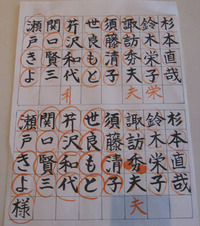 杉本直哉
鈴木栄子
栄
諏訪秀夫
夫
須藤清子
世良もと
芹沢和代
关口賢三
瀬戸きよ
杉本直哉
鈴木栄子
夫
諏訪秀夫
須藤清子
世良もと
芹沢和代
関口賢三
瀬戸きよ様